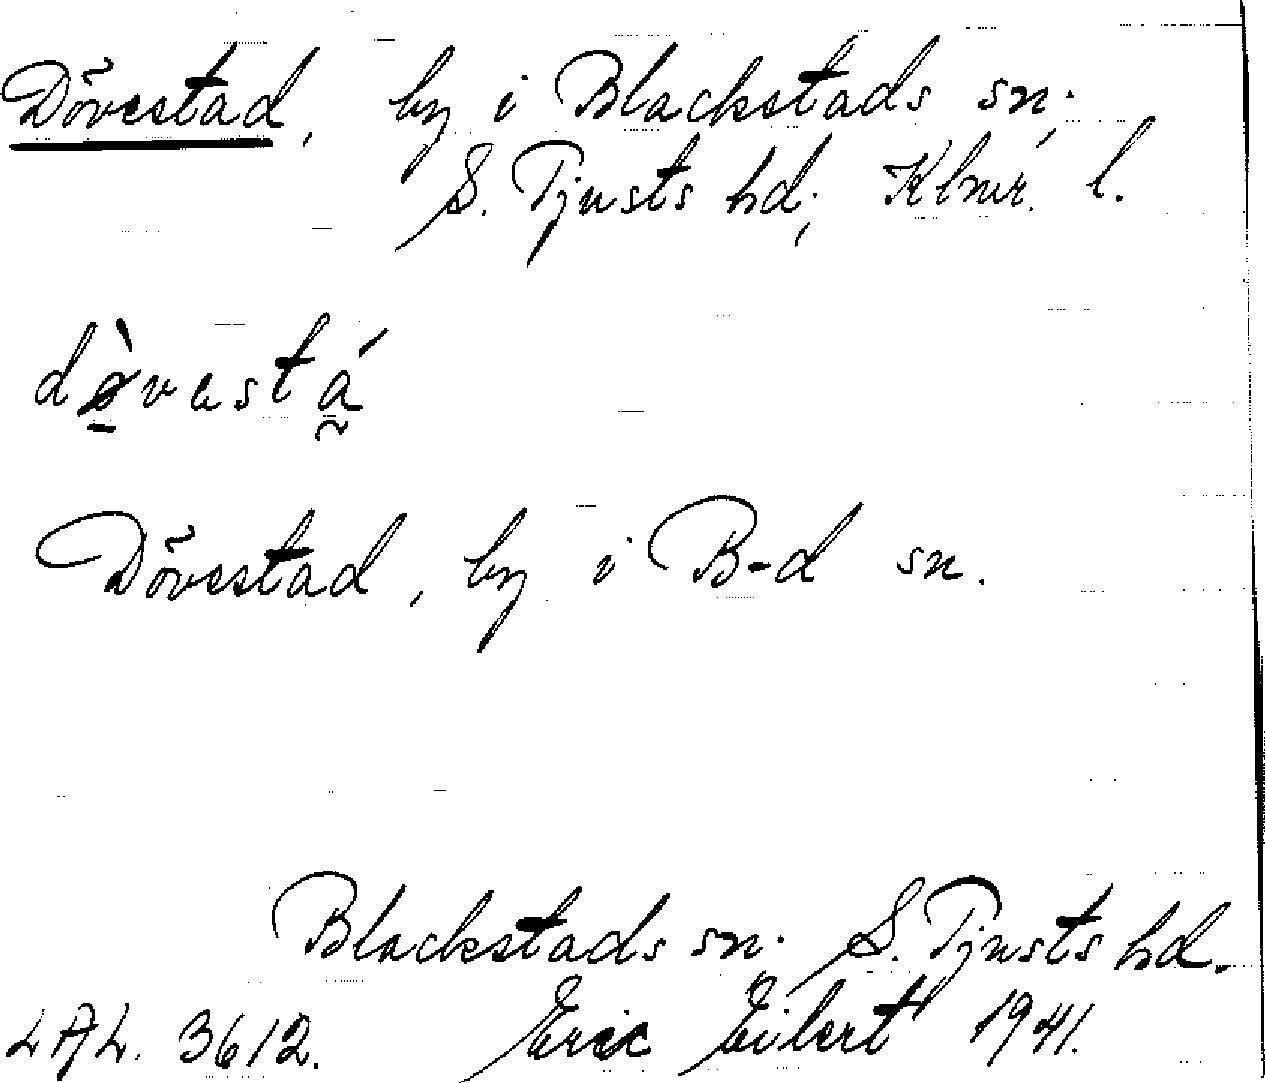 Dövestad, by i Blackstads sn.,
S. Tjusts hd., Klmr. l.
Dövestad, by i B-d sn.
Blackstads sn. S. Tjusts hd.
LAL. 3612. Eric Eilert 1941.